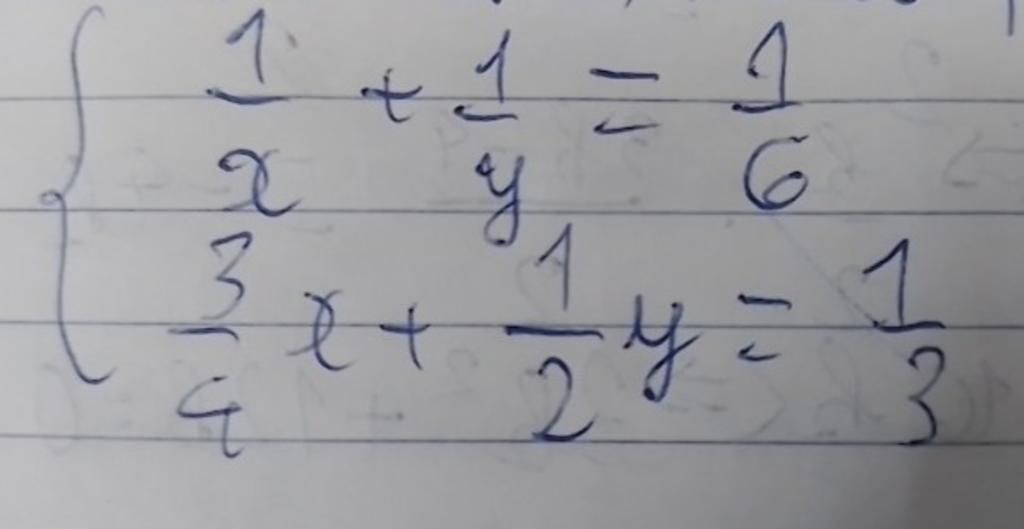 1/x + 1/y = 1/6
3/4 x + 1/2 y = 1/3